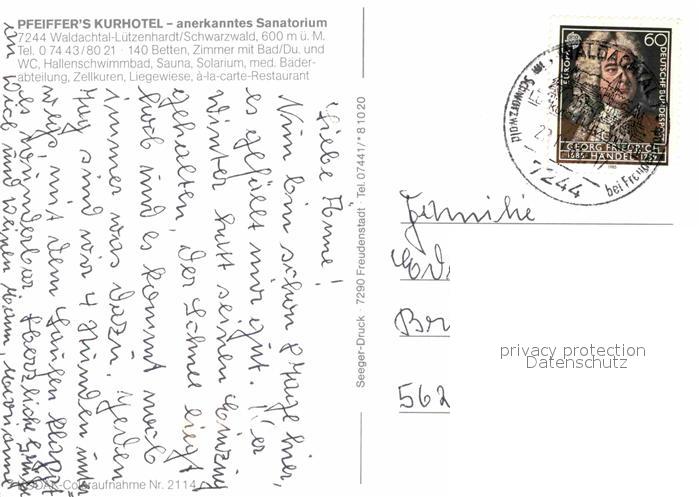 PFEIFFER'S KURHOTEL – anerkanntes Sanatorium
7244 Waldachtal-Lützenhardt/Schwarzwald, 600 m ü. M.
Tel. 0 74 43/80 21 · 140 Betten, Zimmer mit Bad/Du. und
WC, Hallenschwimmbad, Sauna, Solarium, med. Bäder-
abteilung, Zellkuren, Liegewiese, à-la-carte-Restaurant
Liebe Änne!
Nun bin schon 8 Tage hier,
es gefällt mir gut. Der
Winter hat seinen Einzug
gehalten, der Schnee liegt
hoch und es kommt noch
immer was dazu. Jeden
Tag sind wir 4 Stunden
mit dem Laufen klappt
es wunderbar. Herzliche Grüße
Dich und Deinen Mann, Marianne
KODAK-Coloraufnahme Nr. 2114
Seeger-Druck · 7290 Freudenstadt · Tel. 07441/*81020
EUROPA
60
DEUTSCHE BUNDESPOST
GEORG FRIEDRICH
1685 HÄNDEL 1759
WALDACHTAL
im Schwarzwald
7244
bei Freud
Familie
Br
562
privacy protection
Datenschutz